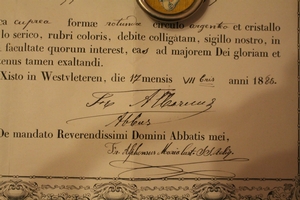 cuprea formæ rotunda circulo argenteo et cristallo
lo serico, rubri coloris, debite colligatam, sigillo nostro, in
facultate quorum interest, eas ad majorem Dei gloriam et
tenus tamen exaltandi.
Xisto in Westvleteren, die 17 mensis VII bris anni 1885.
Abbas
De mandato Reverendissimi Domini Abbatis mei,
Fr. Alphonsus Maria